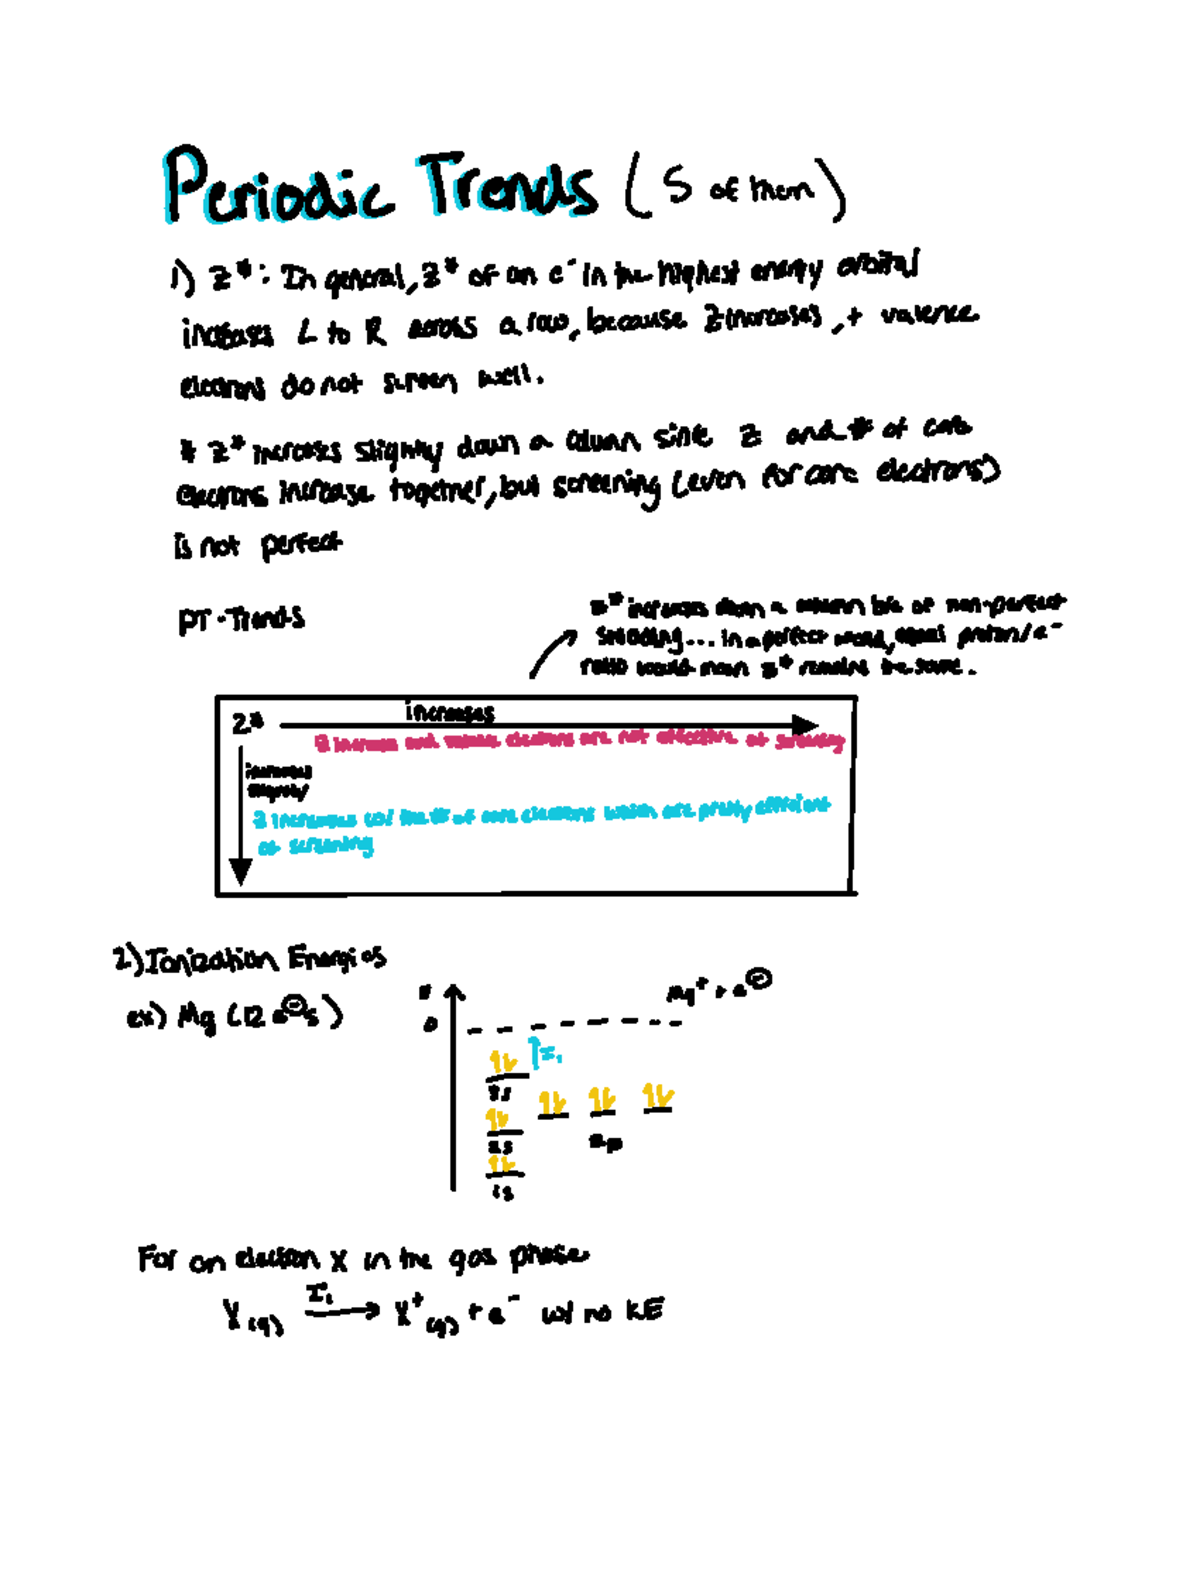 Periodic Trends (5 of them)
1) Z*: In general, Z* of an e⁻ in the highest energy orbital
increases L to R across a row, because Z increases, + valence
electrons do not screen well.
* Z* increases slightly down a column since Z and # of core
electrons increase together, but screening (even for core electrons)
is not perfect
PT-Trends
Z* increases down a column b/c of non-perfect
shielding... in a perfect world, equal proton/e⁻
ratio would mean Z* remains the same.
Z* increases
Z increase and valence electrons are not effective at screening
increases
slightly
Z increases w/ the # of core electrons which are pretty efficient
at screening
2) Ionization Energies
ex) Mg (12 e⊖s)
E
0
Mg⁺ + e⊖
I₁
3s
2s
2p
1s
For an electron X in the gas phase
X(g) I₁→ X⁺(g) + e⁻ w/ no KE